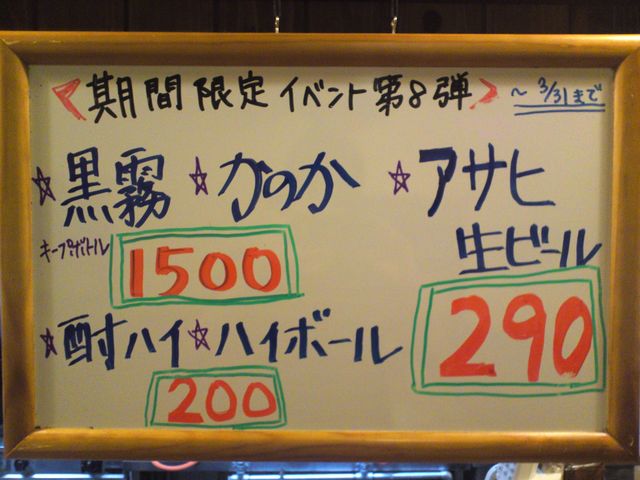 期間限定イベント第8弾 ～3/31まで
☆黒霧☆かのか
キープボトル
1500
☆アサヒ
生ビール
290
☆酎ハイ☆ハイボール
200